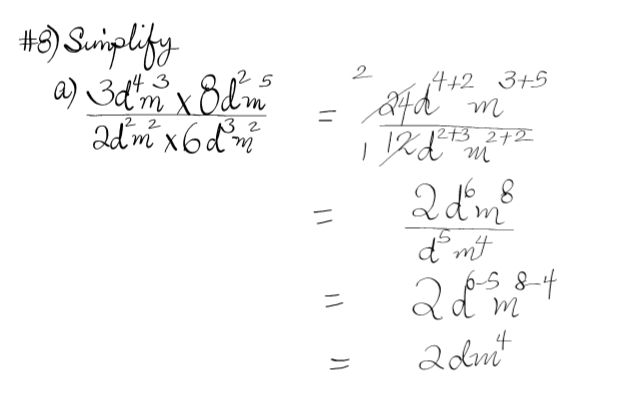 #8) Simplify
a) 3d⁴m³ x 8d²m⁵ / 2d²m² x 6d³m² = 2 24d⁴⁺²m³⁺⁵ / 1 12d²⁺³m²⁺²
= 2d⁶m⁸ / d⁵m⁴
= 2d⁶⁻⁵m⁸⁻⁴
= 2dm⁴